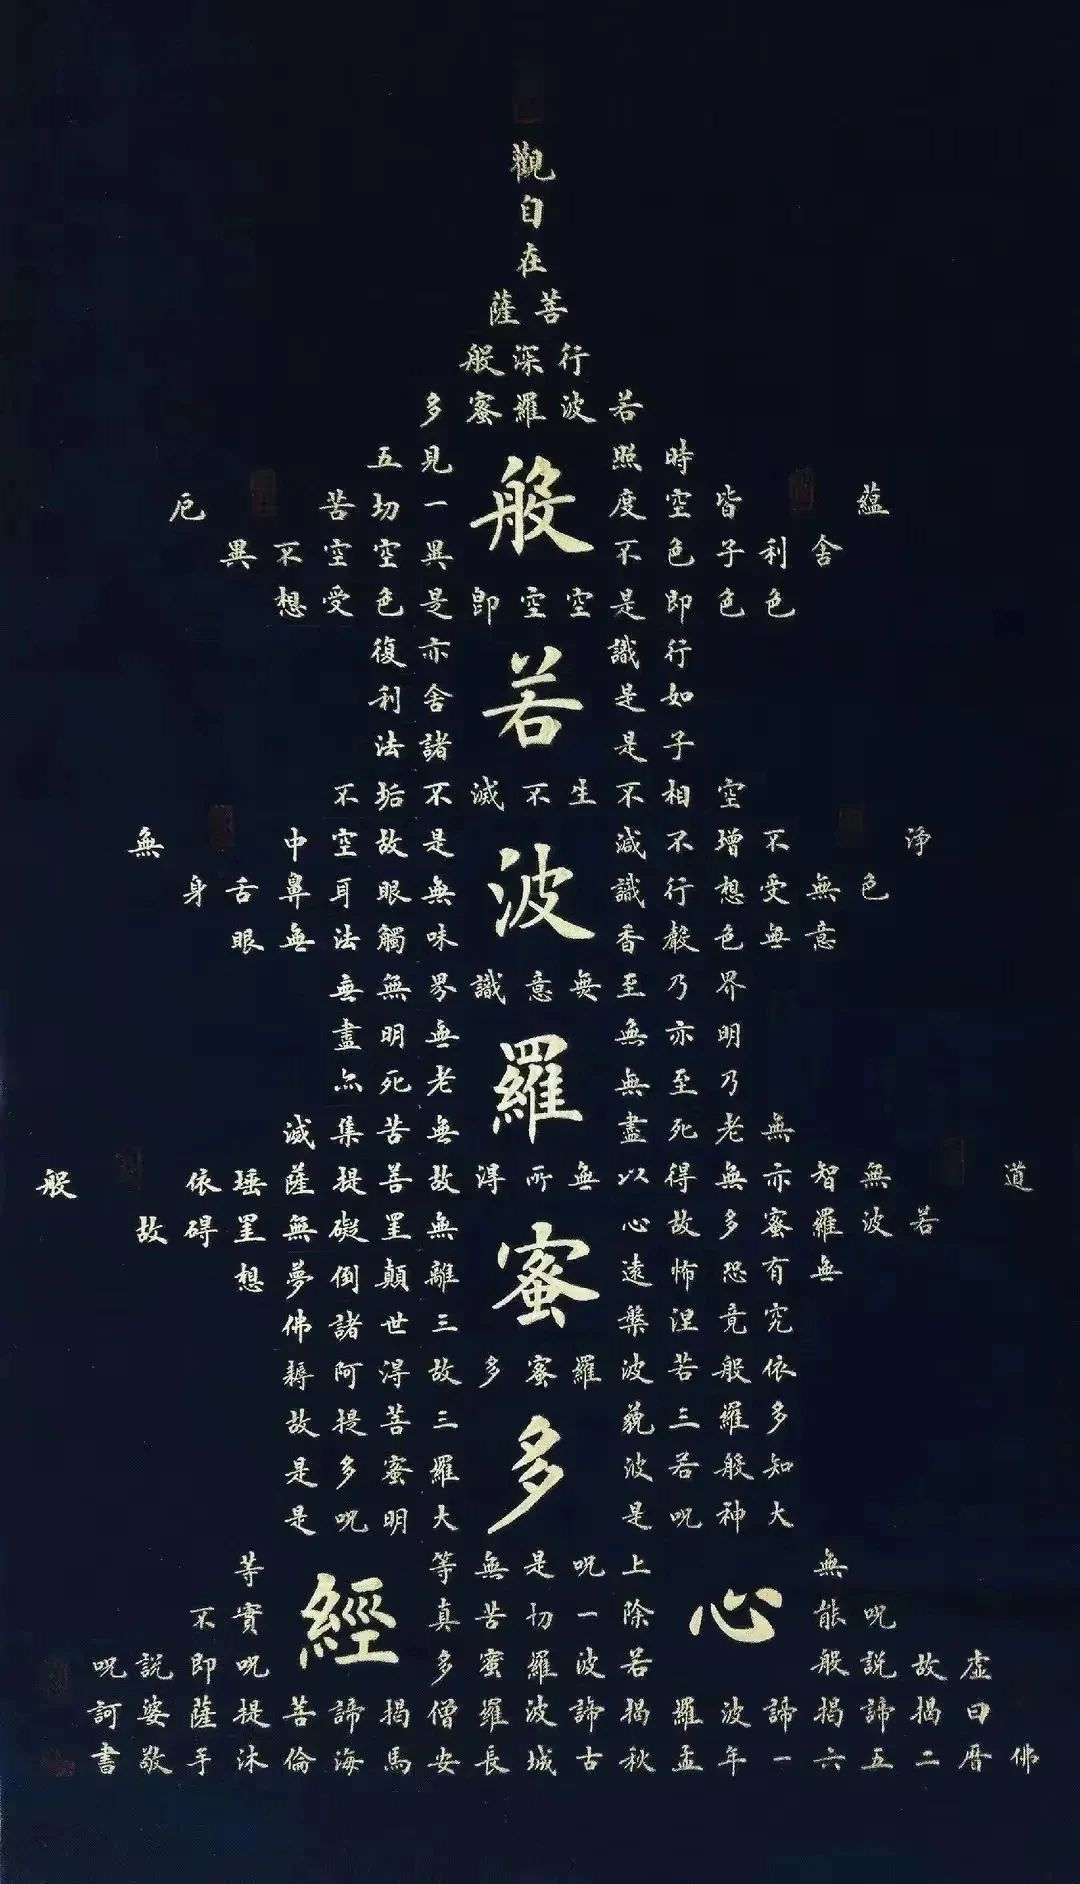 般若波羅蜜多心經
觀
自
在
菩薩
行深般
若波羅蜜多
時照見五
蘊皆空度一切苦厄
舍利子色不異空空不異
色色即是空空即是色受想
行識亦復
如是舍利
子是諸法
空相不生不滅不垢不
淨不增不減是故空中無
色無受想行識無眼耳鼻舌身
意無色聲香味觸法無眼
界乃至無意識界無無
明亦無無明盡
乃至無老死亦
無老死盡無苦集滅
道無智亦無得以無所得故菩提薩埵依般
若波羅蜜多故心無罣礙無罣碍故
無有恐怖遠離顛倒夢想
究竟涅槃三世諸佛
依般若波羅蜜多故得阿耨
多羅三藐三菩提故
知般若波羅蜜多是
大神呪是大明呪是
無上呪是無等等
呪能除一切苦真實不
虛故說般若波羅蜜多呪即說呪
曰揭諦揭諦波羅揭諦波羅僧揭諦菩提薩婆訶
佛曆二五六一年孟秋古城長安馬海倫沐手敬書